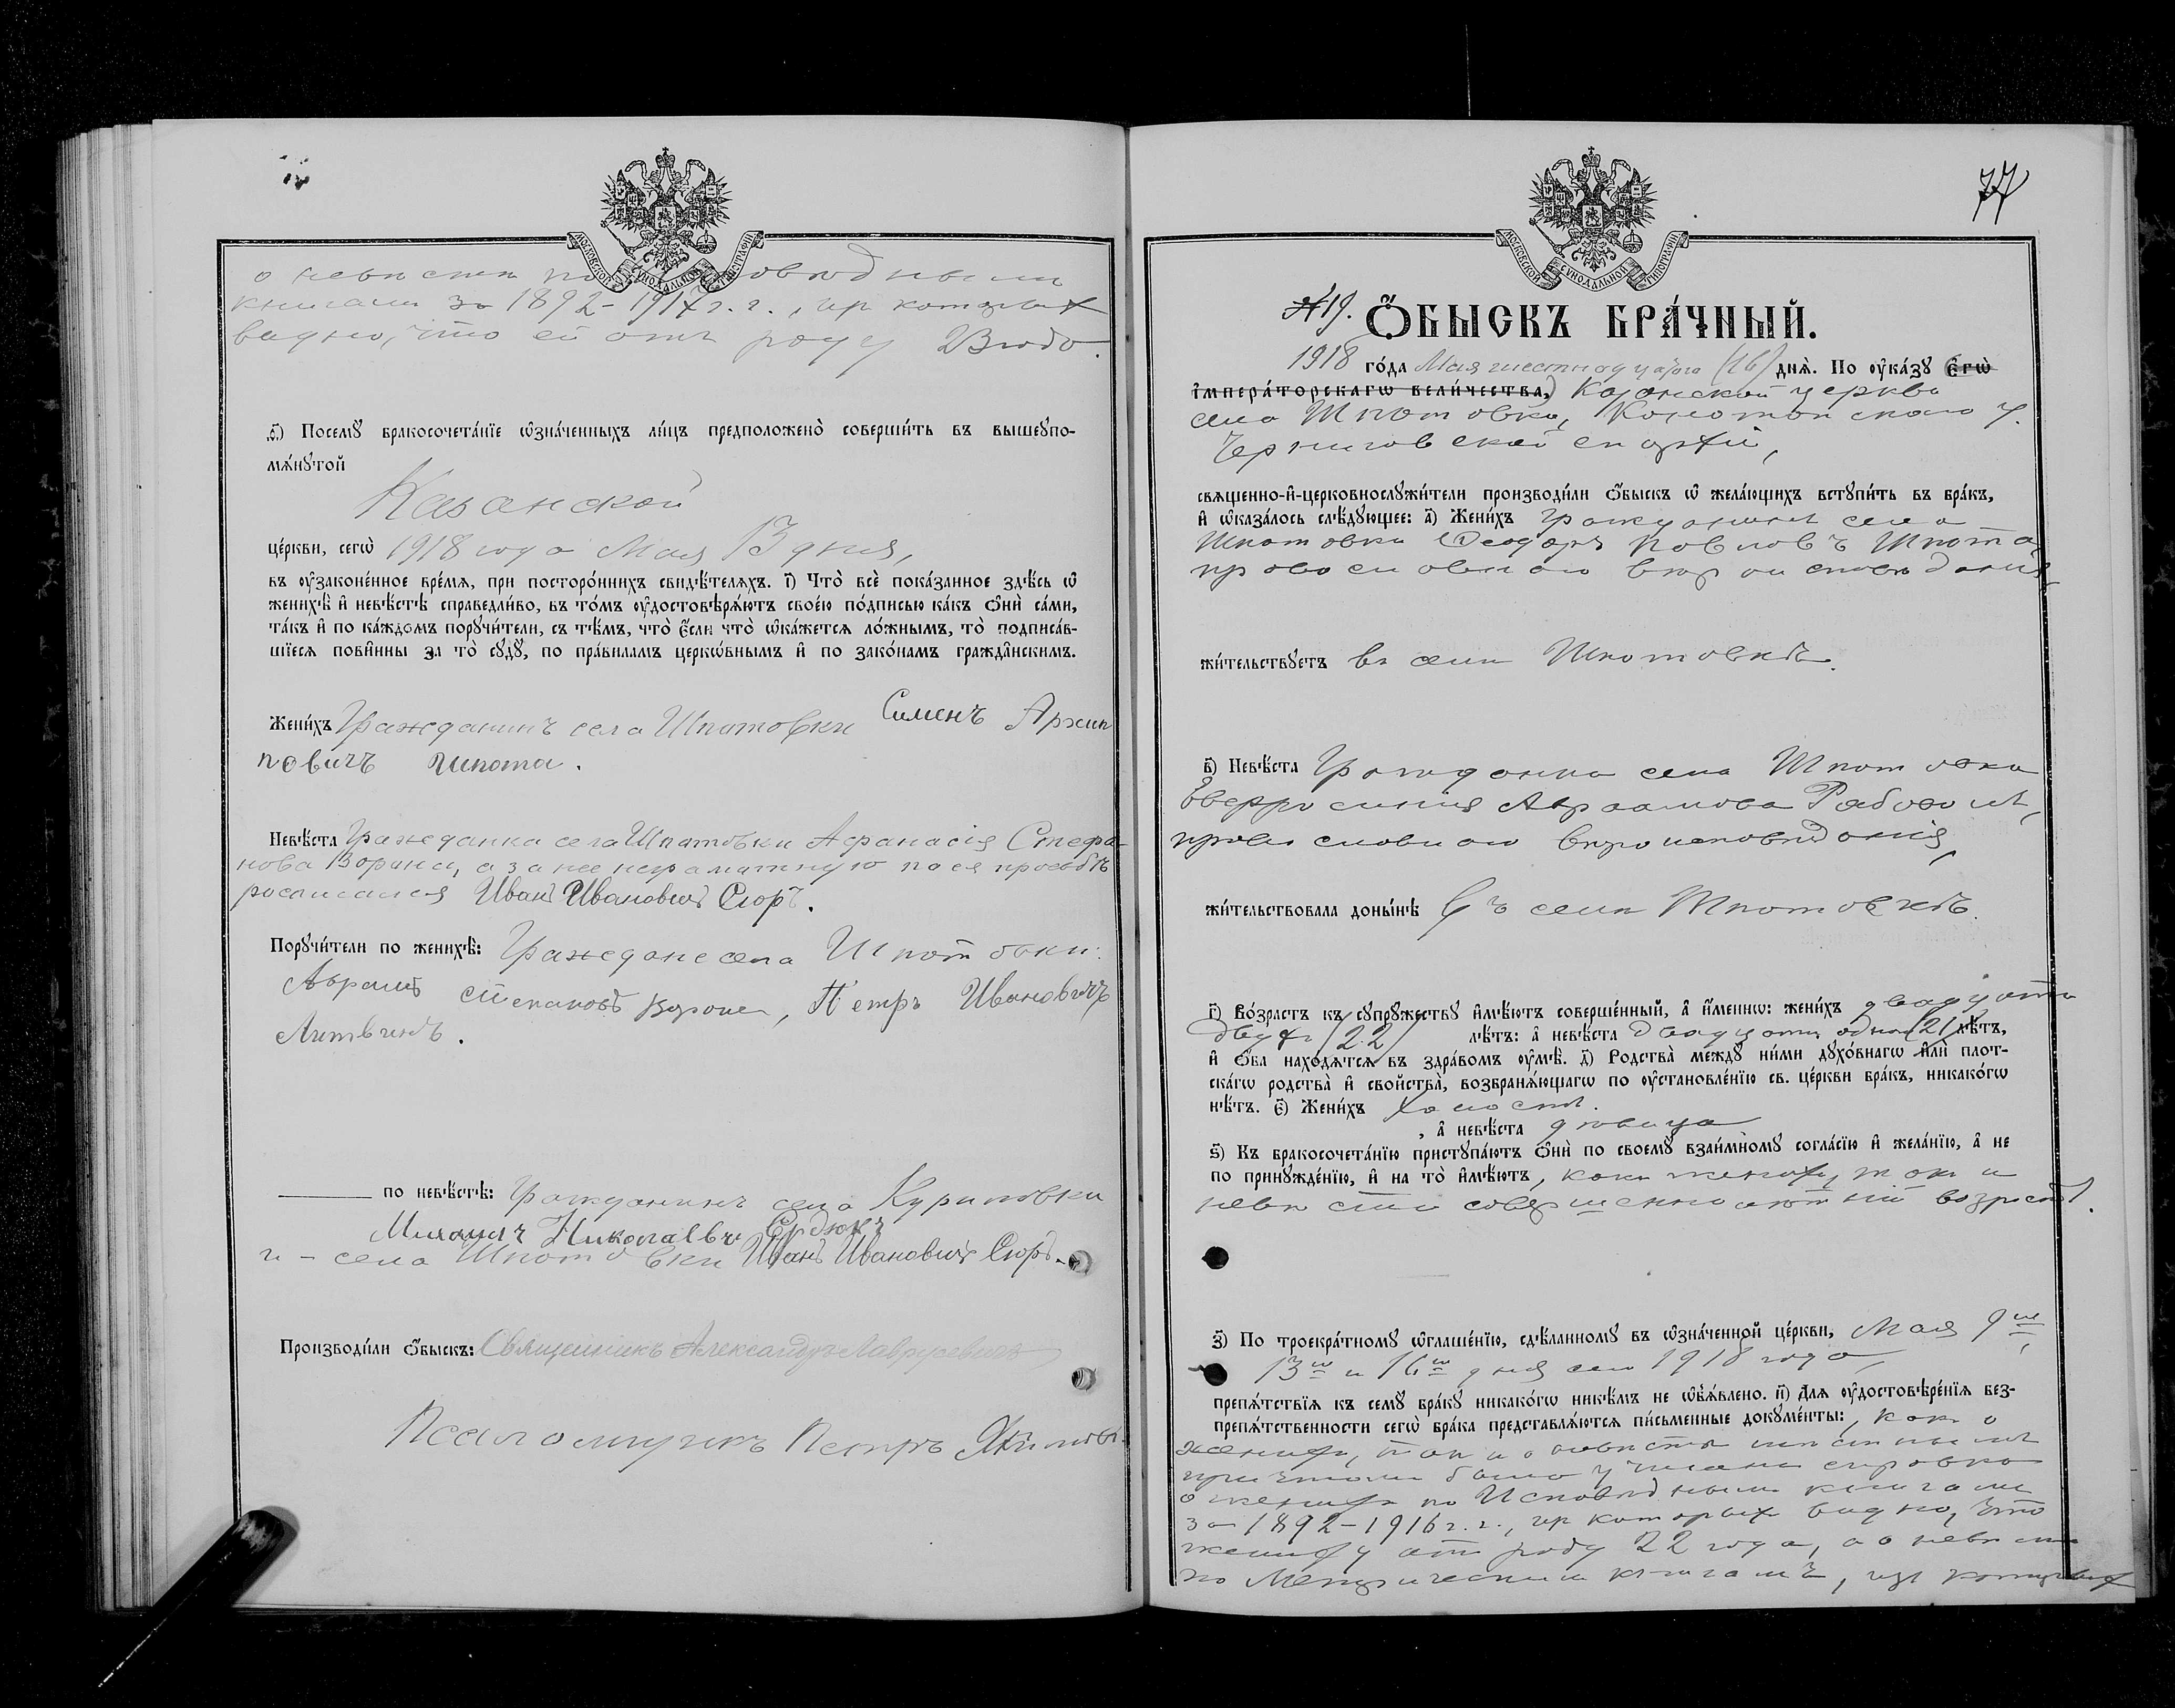 о невесте по
книгам за 1892-1917 г.г., изъ которыхъ
видно, что ей отъ роду
з҃) Посемꙋ бракосочета́нїе ѡ҆зна́ченныхъ ли́цъ предположено̀ соверши́ть въ вышеꙋпо-
мѧ́нꙋтой
Казанской
це́ркви, сегѡ̀ 1918 года Мая 13 дня,
въ ᲂу҆зако́ненное вре́мѧ, при посторо́ннихъ свидѣ́телѧхъ. і҃) Что̀ всѐ пока́занное здѣ́сь ѡ҆
женихѣ̀ и҆ невѣ́стѣ справедли́во, въ то́мъ ᲂу҆достовѣрѧ́ютъ свое́ю по́дписью ка́къ ѻ҆нѝ са́ми,
та́къ и҆ по ка́ждомъ порꙋчи́тели, съ тѣ́мъ, что̀ є҆́сли что̀ ѡ҆ка́жетсѧ ло́жнымъ, то̀ подписа́в-
шїесѧ пови́нны за то̀ сꙋдꙋ̀, по пра́вилам церкѡ́внымъ и҆ по зако́намъ гражда̂нскимъ.
Жени́хъ Гражданинъ села Шпотовки Сименъ Архип
повичъ Шпота.
Невѣ́ста Гражданка села Шпотовки Афанасія Стефа
нова Ворона, а за нее неграматную по ея просьбѣ
росписался Иванъ Ивановичъ Сюръ.
Порꙋчи́тели по женихѣ̀: Граждане села Шпотовки:
Аврамъ Степановъ Ворона, Петръ Ивановичъ
Литвинъ.
по невѣ́стѣ: Гражданинъ села Куриловки
Михаилъ Николаевъ Сердюкъ
и - села Шпотовки Иванъ Ивановичъ Сюръ.
Производи́ли ѻ҆́быскъ: Священникъ Александръ Лаврусевичъ
Псаломщикъ Петръ
МОСКОВСКОЙ СѴНОДАЛЬНОЙ ТИПОГРАФІИ
77
№ 19. Ѻ҆́БЫСКЪ БРА́ЧНЫЙ.
1918 го́да Мая шестнадцатаго (16) днѧ̀. По ᲂу҆ка́зꙋ Є҆гѡ̀
і҆мпера́торскагѡ вели́чества, Казанской церкви
села Шпотовки, Конотопскаго у.
Черниговской епархіи,
свѧще́нно-и҆-церковнослꙋжи́тели производи́ли ѻ҆́быскъ ѡ҆ жела́ющихъ встꙋпи́ть въ бра́къ,
и҆ ѡ҆каза́лось слѣ́дꙋющее: а҃) Жени́хъ Гражданинъ села
Шпотовки Ѳеодоръ Павловъ Шпота,
православнаго вѣроисповѣданія,
жи́тельствꙋетъ въ селѣ Шпотовкѣ.
в҃) Невѣ́ста Гражданка села Шпотовки
Евфросинія Авраамова
православнаго вѣроисповѣданія,
жи́тельствовала доны́нѣ въ селѣ Шпотовкѣ.
г҃) Во́зрастъ къ сꙋпрꙋ́жествꙋ и҆мѣ́ютъ соверше́нный, а҆ и҆́меннѡ: жени́хъ двадцати
двухъ (22) лѣ́тъ: а҆ невѣ́ста двадцати одного (21) лѣ́тъ,
и҆ ѻ҆́ба нахо́дѧтсѧ въ здра́вомъ ᲂу҆мѣ̀. д҃) Родства̀ междꙋ̀ ни́ми дꙋхо́внагѡ и҆лѝ плот-
ска́гѡ родства̀ и҆ свойства̀, возбранѧ́ющагѡ по ᲂу҆становле́нїю св. це́ркви бра́къ, никако́гѡ
нѣ́тъ. є҃) Жени́хъ холостъ.
, а҆ невѣ́ста дѣвица
ѕ҃) Къ бракосочета́нїю пристꙋпа́ютъ ѻ҆нѝ по своемꙋ̀ взаи́мномꙋ согла́сїю и҆ жела́нїю, а҆ не
по принꙋжде́нїю, и҆ на то̀ и҆мѣ́ютъ, какъ женихъ, такъ и
невѣста совершеннолѣтній возрастъ.
з҃) По троекра́тномꙋ ѡ҆глаше́нїю, сдѣ́ланномꙋ въ ѡ҆зна́ченной це́ркви, Мая 9го,
13го и 16го дня сего 1918 года,
препѧ́тствїѧ къ семꙋ̀ бра́кꙋ никако́гѡ никѣ́мъ не ѡ҆б̾ѧ́влено. и҃) Длѧ ᲂу҆достовѣре́нїѧ без-
препѧ́тственности сегѡ̀ бра́ка представлѧ́ютсѧ пи́сьменные докꙋме́нты:, какъ о
женихѣ, такъ и о невѣстѣ мѣстнымъ
причтомъ была учинена справка
о женихѣ по Исповѣднымъ книгамъ
за 1892-1916 г.г., изъ которыхъ видно, что
жениху отъ роду 22 года, а о невѣстѣ
по Метрическимъ книгамъ, изъ которыхъ
МОСКОВСКОЙ СѴНОДАЛЬНОЙ ТИПОГРАФІИ